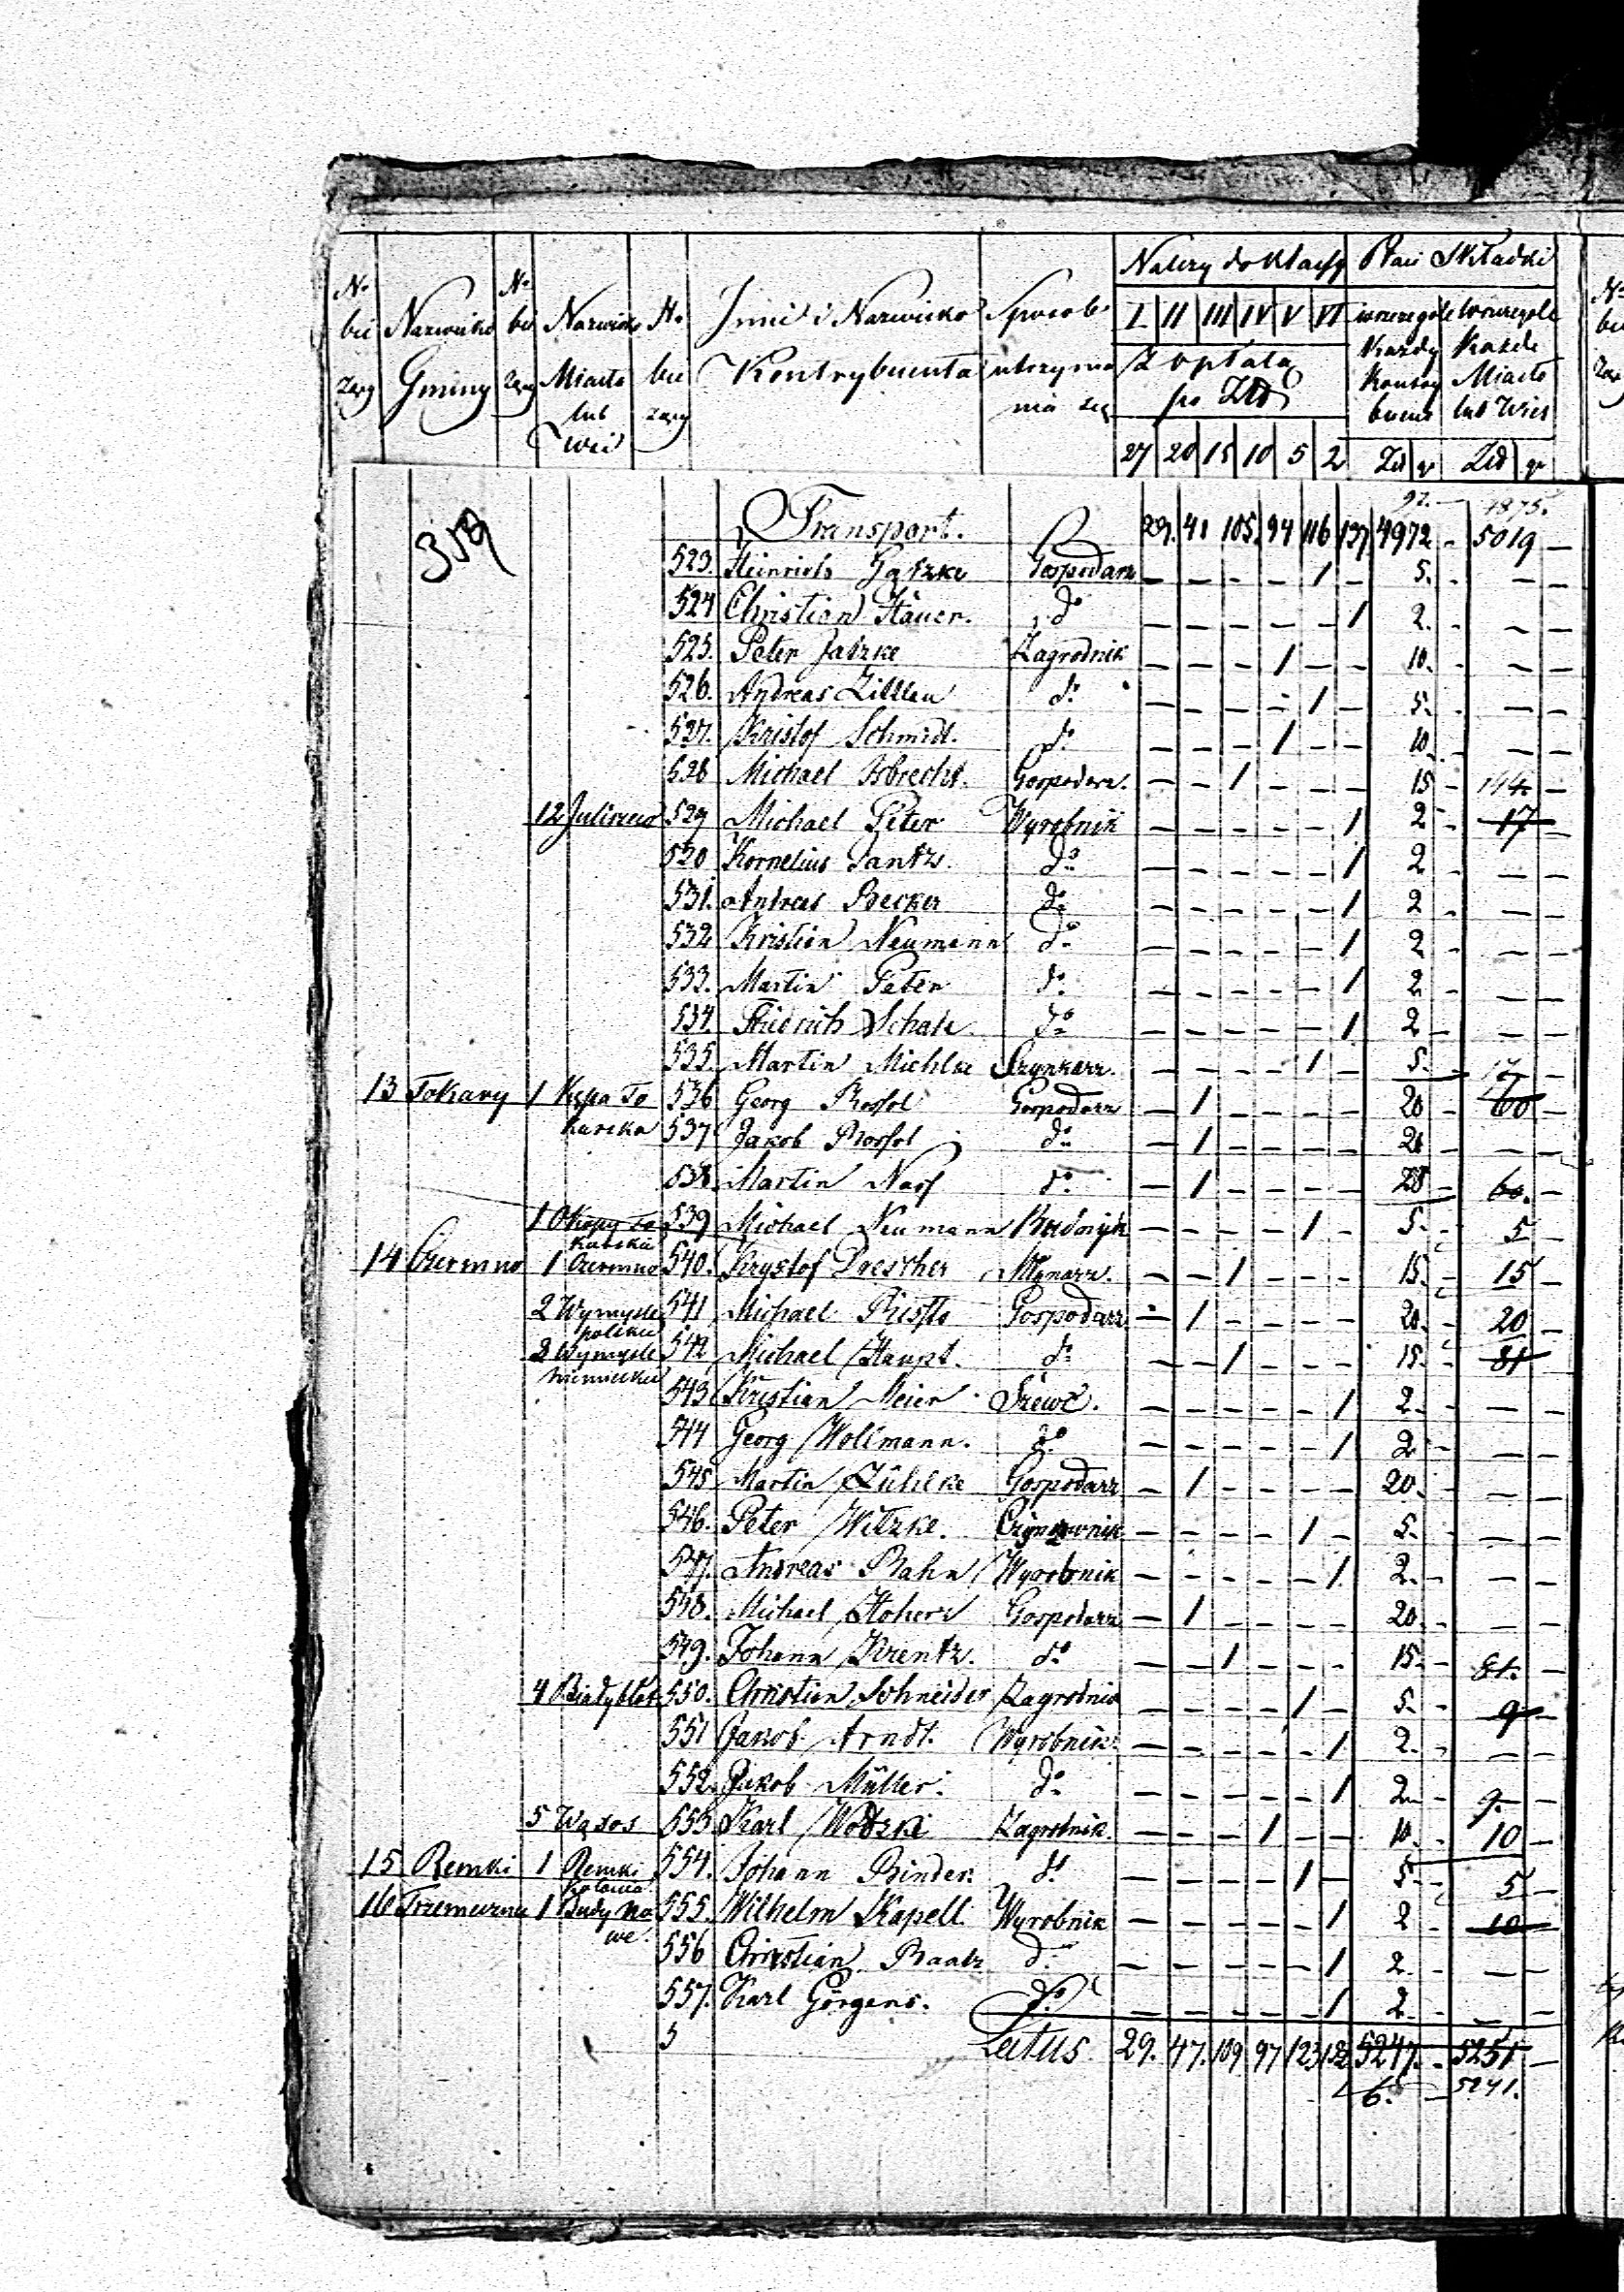 Należy do Klassy Płaci Składki
No bie żący Nazwisko Gminy No bie żący Nazwisko Miasta lub Wsi No bie żący Imie i Nazwisko Kontrybuenta Sposob utrzyma nia się I II III IV V VI z opłatą po Złp w szczegole Każdy Kontry buent w szczegole Każde Miasto lub Wieś
27 20 15 10 5 2 Złp gr Złp gr
92. — 4875.
319 Transport. 29. 41 105. 94 116 137 4972 - 5019 —
523. Heinrich Gatzke Gospodarz — — — — 1 — 5. - — —
524 Christian Hauer. do — — — — — 1 2. - — —
525. Peter Jatzke Zagrodnik — — — 1 — — 10. - — —
526. Andreas Zittlau do — — — — 1 — 5. - — —
527. Kristof Schmidt. do — — — 1 — — 10. - — —
528 Michael Isbrecht. Gospodarz. — — 1 — — — 15 - 144. —
12 529 Michael Peter Wyrobnik — — — — — 1 2 - 17 —
520 Kornelius Jantz. do — — — — — 1 2 - — —
531. Andreas Becker do — — — — — 1 2 - — —
532 Kristian Neumann do — — — — — 1 2 - — —
533. Martin Peter do — — — — — 1 2 - — —
534. Fridrich Schale do — — — — — 1 2 - — —
535. Martin Michlke Szynkarz. — — — — 1 — 5. - 17 —
13 Tokary 1 Kępa To 536 Georg Rossol Gospodarz — 1 — — — — 20 - 60 —
karska 537 Jakob Rossol do — 1 — — — — 20 - — —
538. Martin Nass do — 1 — — — — 20 - 60. —
1 Okopy To 539 Michael Neumann Budnik — — — — 1 — 5. - 5 —
karskie
14 Czermno 1 Czermno 540. Krystof Drescher Młynarz. — — 1 — — — 15. - 15 —
2 Wymysle 541 Michael Gospodarz — 1 — — — — 20. - 20 —
polskie
3 Wymysle 542 Michael Haupt. do — — 1 — — — 15. - 81 —
niemieckie
543 Kristian Meier Szewc. — — — — — 1 2. - — —
544 Georg Wollmann. do — — — — — 1 2 - — —
545 Martin Zühlke Gospodarz — 1 — — — — 20. - — —
546. Peter Witzke. Czynszownik — — — — 1 — 5. - — —
547. Andreas Rahn Wyrobnik — — — — — 1 2. - — —
548. Michael Gospodarz — 1 — — — — 20. - — —
549. Johann Krentz. do — — 1 — — — 15. - 81. —
4 550. Christian Schneider Zagrodnik — — — — 1 — 5. - 9 —
551 Jakob Arndt. Wyrobnik. — — — — — 1 2. - — —
552. Jakob Müller. do — — — — — 1 2 - 9. —
5 Wąsos 553 Karl Wodzki Zagrodnik. — — — 1 — — 10. - 10 —
15 Remki 1 Remki 554. Johann Binder. do — — — — 1 — 5 - 5 —
Kolonia
16 1 Budy No 555. Wilhelm Kapell. Wyrobnik — — — — — 1 2 - 10 —
we.
556 Christian Raatz do — — — — — 1 2. - — —
557. Karl Görgens. do — — — — — 1 2. - — —
Latus 29. 47. 109 97 123 152 5247. - 5251 —
6. — 5241.